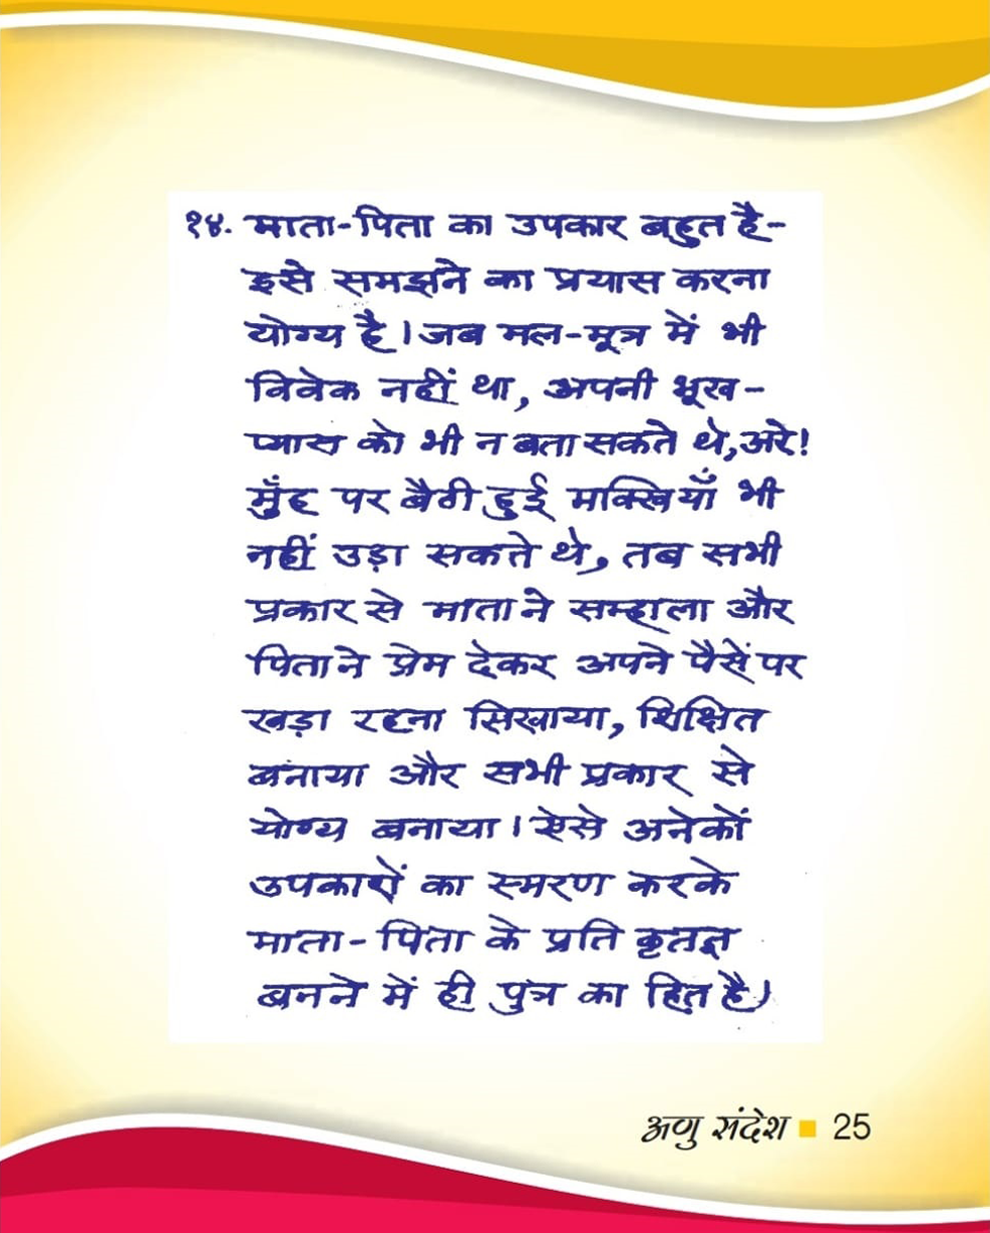 १४. माता-पिता का उपकार बहुत है-
इसे समझने का प्रयास करना
योग्य है। जब मल-मूत्र में भी
विवेक नहीं था, अपनी भूख-
प्यास को भी न बता सकते थे, अरे!
मुँह पर बैठी हुई मक्खियाँ भी
नहीं उड़ा सकते थे, तब सभी
प्रकार से माता ने सम्हाला और
पिता ने प्रेम देकर अपने पैरों पर
खड़ा रहना सिखाया, शिक्षित
बनाया और सभी प्रकार से
योग्य बनाया। ऐसे अनेकों
उपकारों का स्मरण करके
माता-पिता के प्रति कृतज्ञ
बनने में ही पुत्र का हित है।
अणु संदेश ■ 25